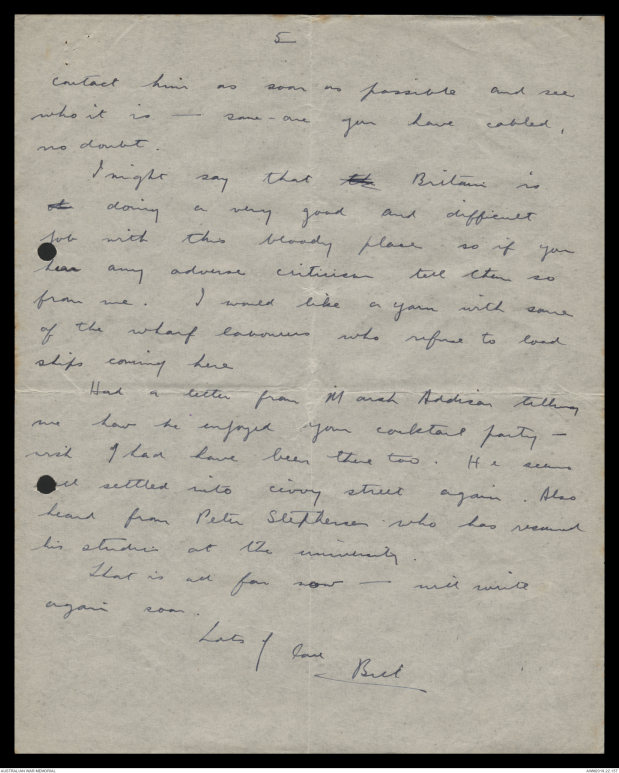 5
contact him as soon as possible and see
who it is — some-one you have cabled,
no doubt.
I might say that the Britain is
doing a very good and difficult
job with this bloody place so if you
hear any adverse criticism tell them so
from me. I would like a yarn with some
of the wharf labourers who refuse to load
ships coming here
Had a letter from Marsh Addison telling
me how he enjoyed your cocktail party —
wish I had have been there too. He seems
well settled into civvy street again. Also
heard from Peter Stephenson who has resumed
his studies at the university.
That is all for now — will write
again soon.
Lots of love
Bill
AUSTRALIAN WAR MEMORIAL